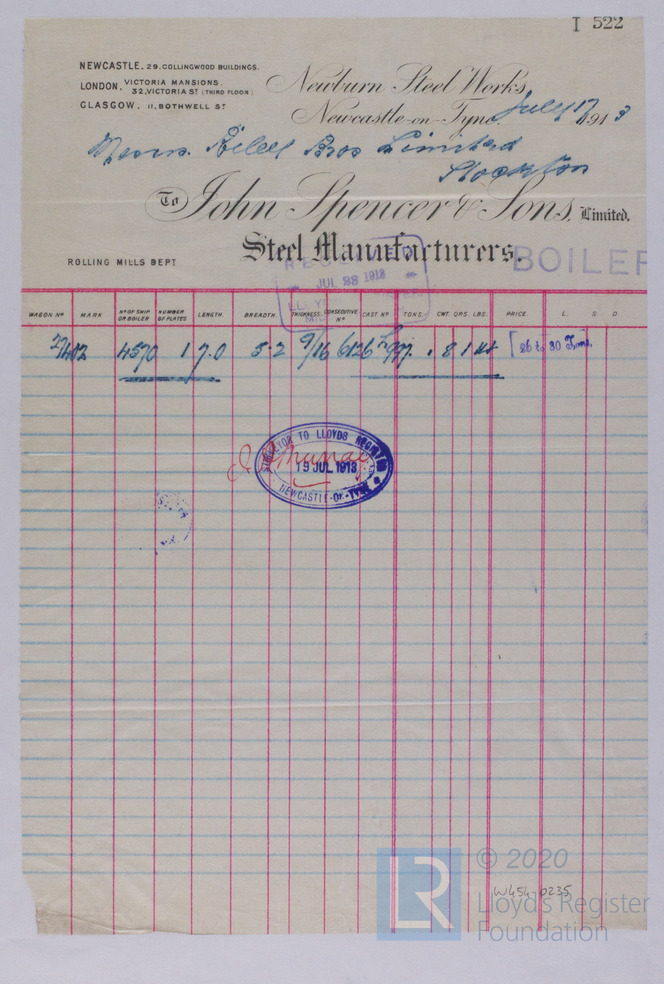 I 522
NEWCASTLE. 29. COLLINGWOOD BUILDINGS.
LONDON. VICTORIA MANSIONS.
32, VICTORIA ST (THIRD FLOOR)
GLASGOW. 11, BOTHWELL ST
Newburn Steel Works,
Newcastle-on-Tyne, July 17 1913
Messrs. Riley Bros Limited
Stockton
To John Spencer & Sons, Limited.
Steel Manufacturers.
ROLLING MILLS DEPT
RECEIVED
JUL 28 1913
BOILER
WAGON Nº MARK Nº OF SHIP OR BOILER NUMBER OF PLATES LENGTH. BREADTH. THICKNESS. CONSECUTIVE Nº CAST Nº TONS. CWT. QRS. LBS. PRICE. L. S. D.
4570 1 7.0 5.2 9/16 6126 . 8 1 [26 to 30 Tons.
SURVEYOR TO LLOYDS REGISTER
19 JUL 1913
NEWCASTLE-ON-TYNE
LR
© 2020
W454-0235
Lloyd's Register
Foundation